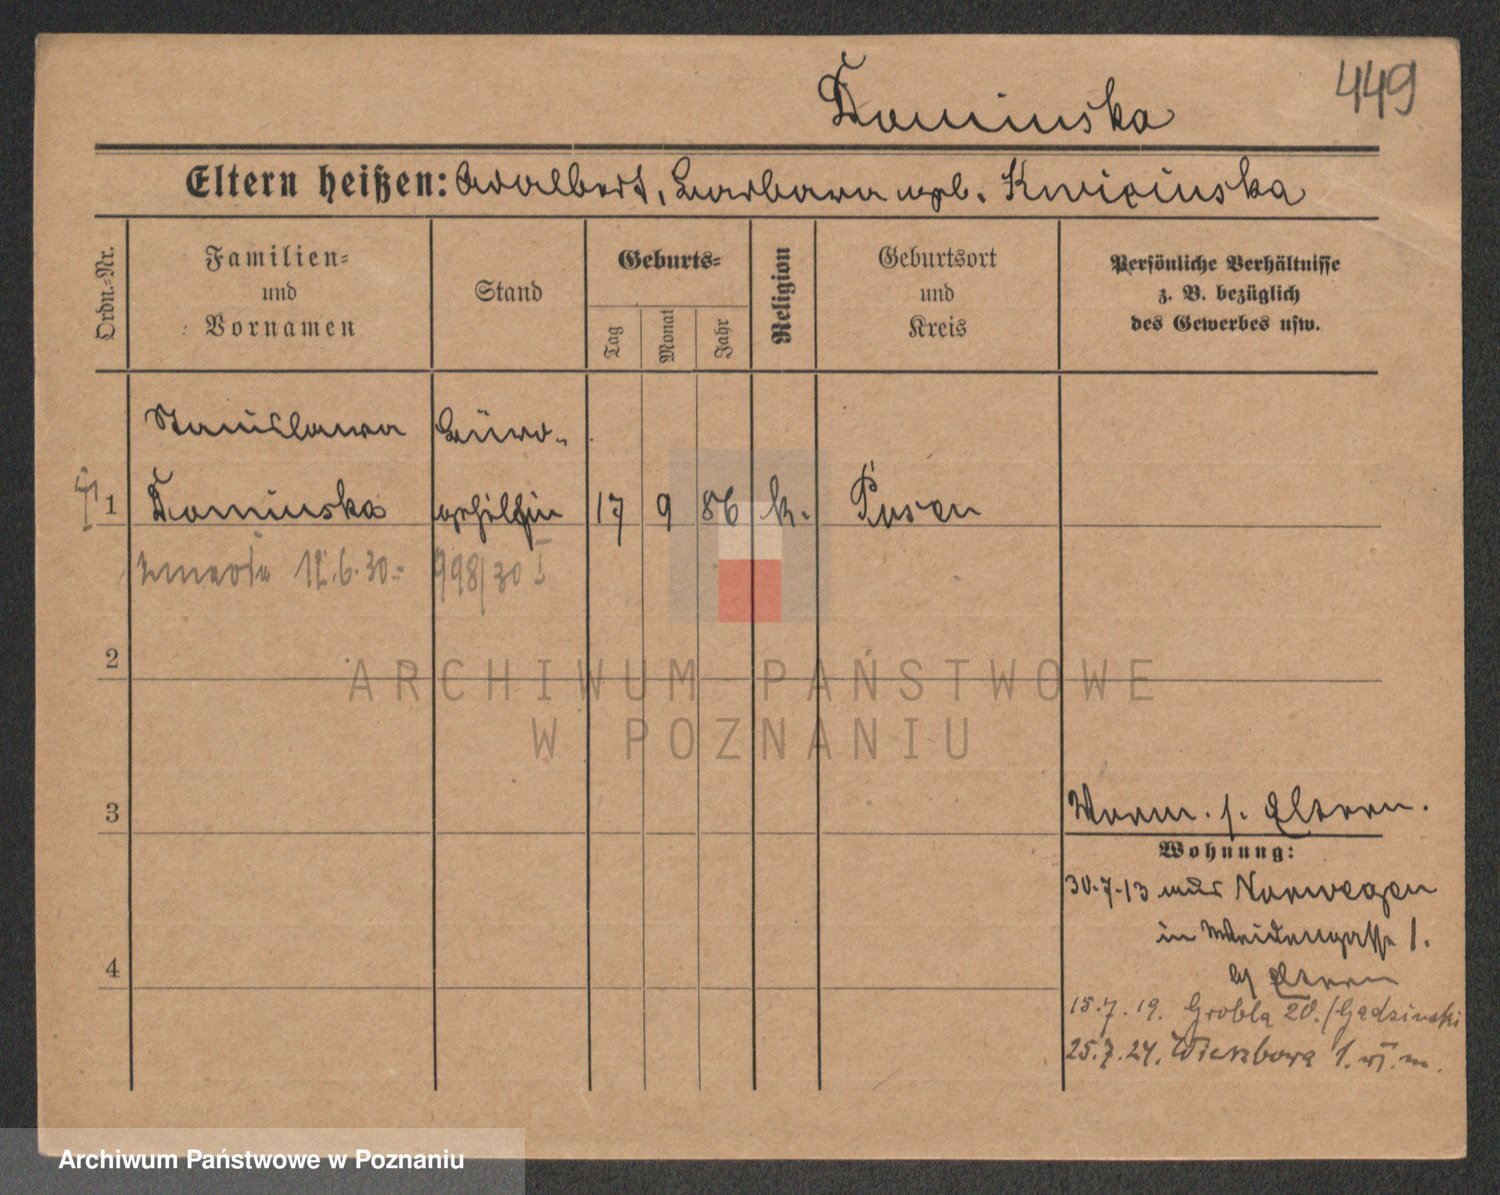 449
Dominska
Eltern heißen: Adalbert, Barbara geb. Kwicinska
Ordn.-Nr.
Familien-
und
Vornamen
Stand
Geburts-
Tag
Monat
Jahr
Religion
Geburtsort
und
Kreis
Persönliche Verhältnisse
z. B. bezüglich
des Gewerbes usw.
Stanislawa Büro-
1 Dominska gehilfin 17 9 86 k. Posen
zmarła 12.6.30.- 998/30 I
2
ARCHIWUM PAŃSTWOWE
W POZNANIU
3
Vorm. s. Eltern.
Wohnung:
30.7.13 aus Norwegen
in Weidengasse 1.
b/ Eltern
4
15.7.19. Grobla 20./Gadzinski
25.7.24. Wierzbowa 1. w. m.
Archiwum Państwowe w Poznaniu